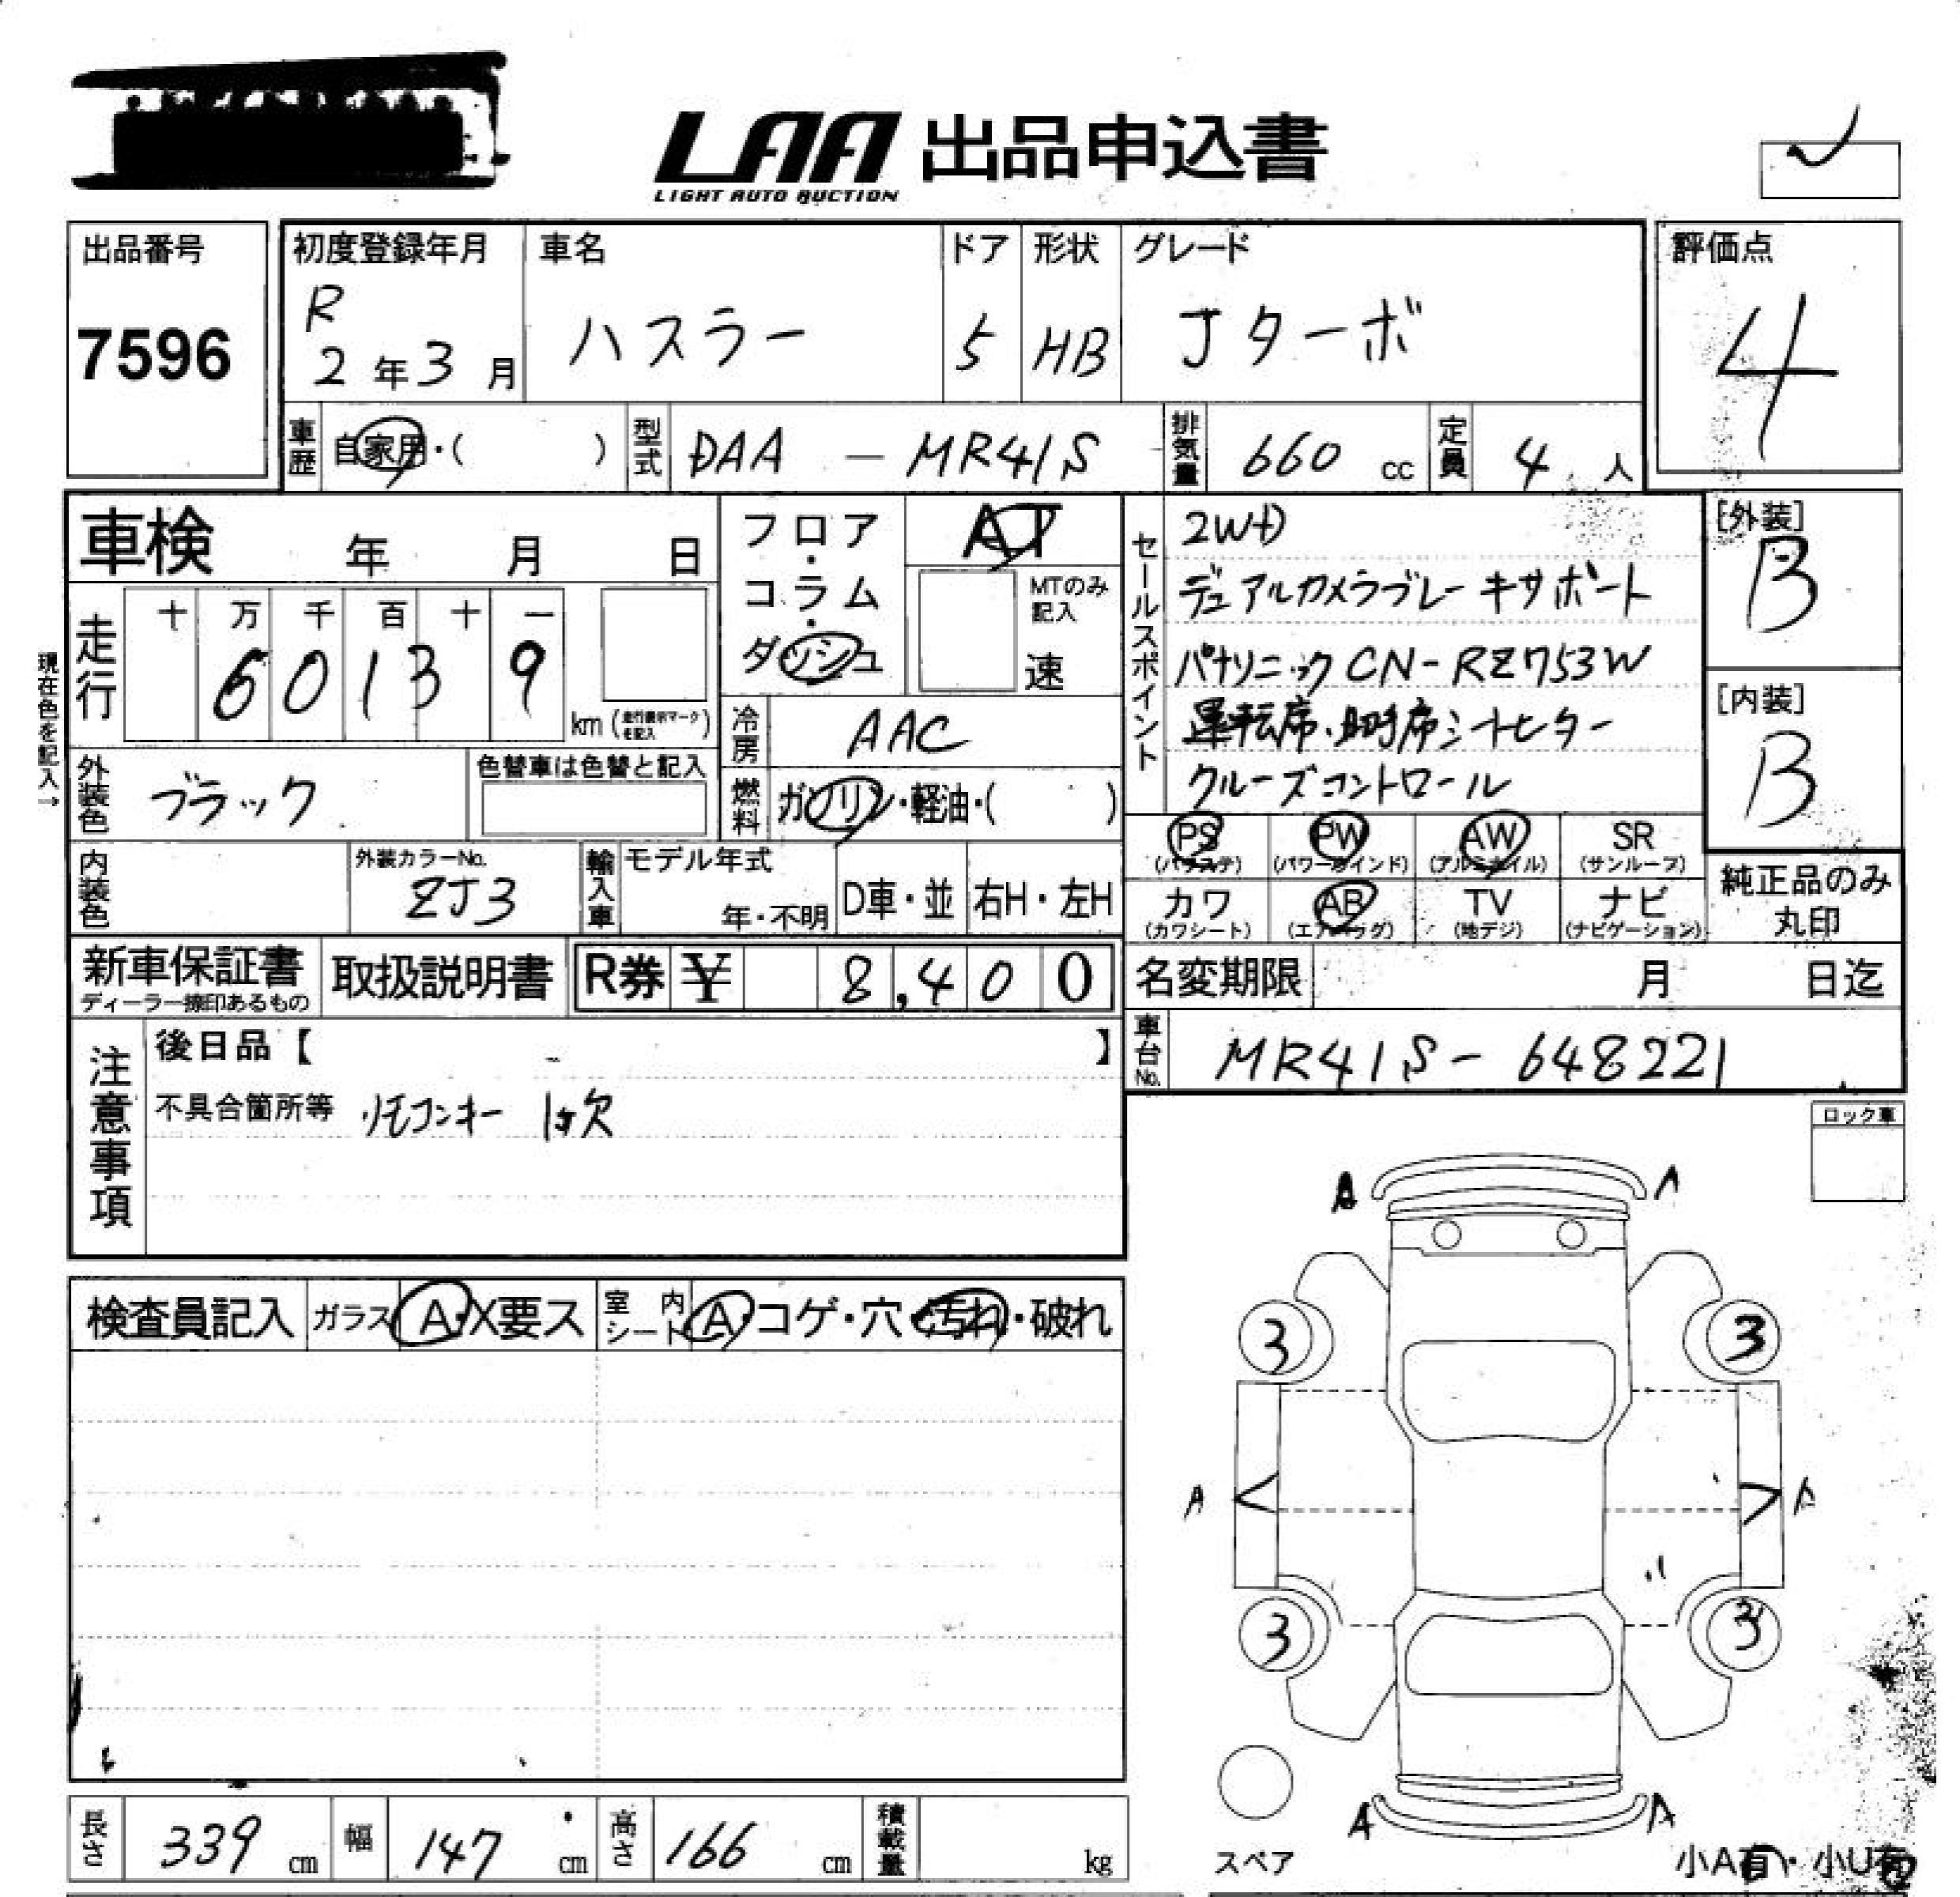 LAA 出品申込書
LIGHT AUTO AUCTION
出品番号
7596
初度登録年月
R
2年3月
車名
ハスラー
ドア
5
形状
HB
グレード
Jターボ
評価点
4
車歴
自家用・( )
型式
DAA - MR41S
排気量
660 cc
定員
4人
車検 年 月 日
走行
十 万 千 百 十 一
60139
km (走行表示マークを記入)
現在色を記入→
フロア・コラム・ダッシュ
AT
MTのみ記入
速
冷房
AAC
外装色
ブラック
色替車は色替と記入
燃料
ガソリン・軽油・( )
内装色
外装カラーNo.
ZJ3
輸入車
モデル年式
年・不明
D車・並
右H・左H
セールスポイント
2WD
デュアルカメラブレーキサポート
パナソニック CN-RZ753W
運転席・助手席シートヒーター
クルーズコントロール
[外装]
B
[内装]
B
PS
(パワステ)
PW
(パワーウインド)
AW
(アルミホイル)
SR
(サンルーフ)
カワ
(カワシート)
AB
(エアバッグ)
TV
(地デジ)
ナビ
(ナビゲーション)
純正品のみ
丸印
新車保証書
ディーラー捺印あるもの
取扱説明書
R券 ¥ 8,400
名変期限 月 日迄
車台No.
MR41S-648221
注意事項
後日品【 】
不具合箇所等 リモコンキー 1ヶ欠
ロック車
A A
検査員記入
ガラス A・X要ス
室内シート A・コゲ・穴・汚れ・破れ
3 3
A A
3 3
A A
スペア
小A有・小U有
長さ 339 cm
幅 147 cm
高さ 166 cm
積載量 kg